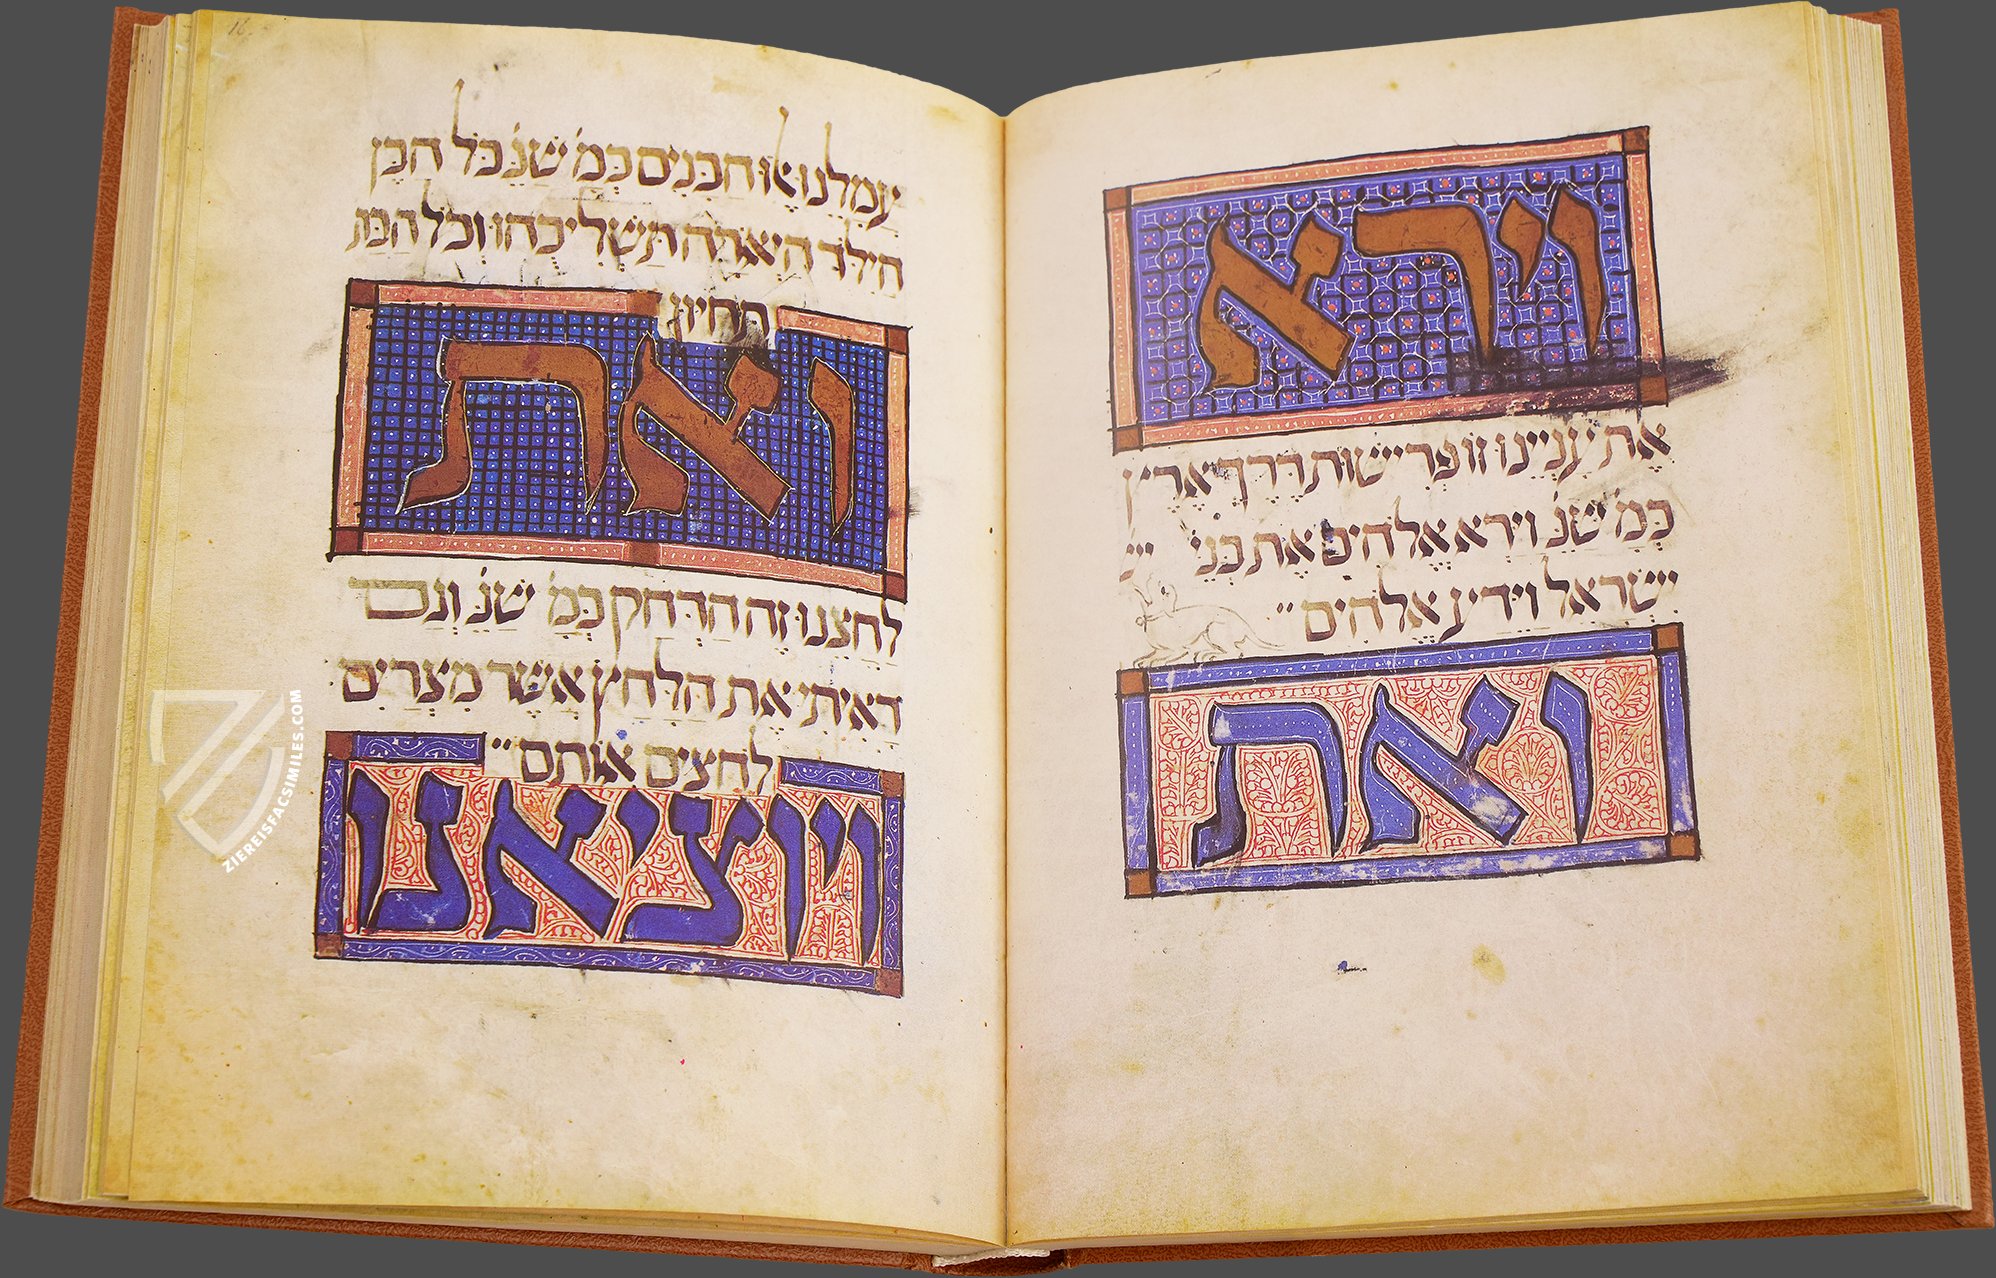 16
וירא
את עניינו זו פרישות דרך ארץ
כמ' שנ' וירא אלהים את בני יש
ישראל וידע אלהים"
ואת
עמלנו אלו הבנים כמ' שנ' כל הבן
הילד היארה תשליכהו וכל הבת
תחיון
ואת
לחצנו זה הדחק כמ' שנ' וגם
ראיתי את הלחץ אשר מצרים
לחצים אותם"
ויוציאנו
ZIEREISFACSIMILES.COM